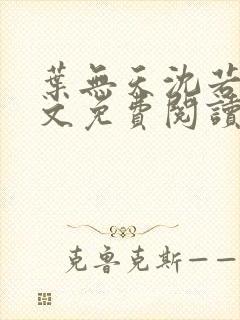 葉無天沈若
文免費閱讀
克魯克斯——